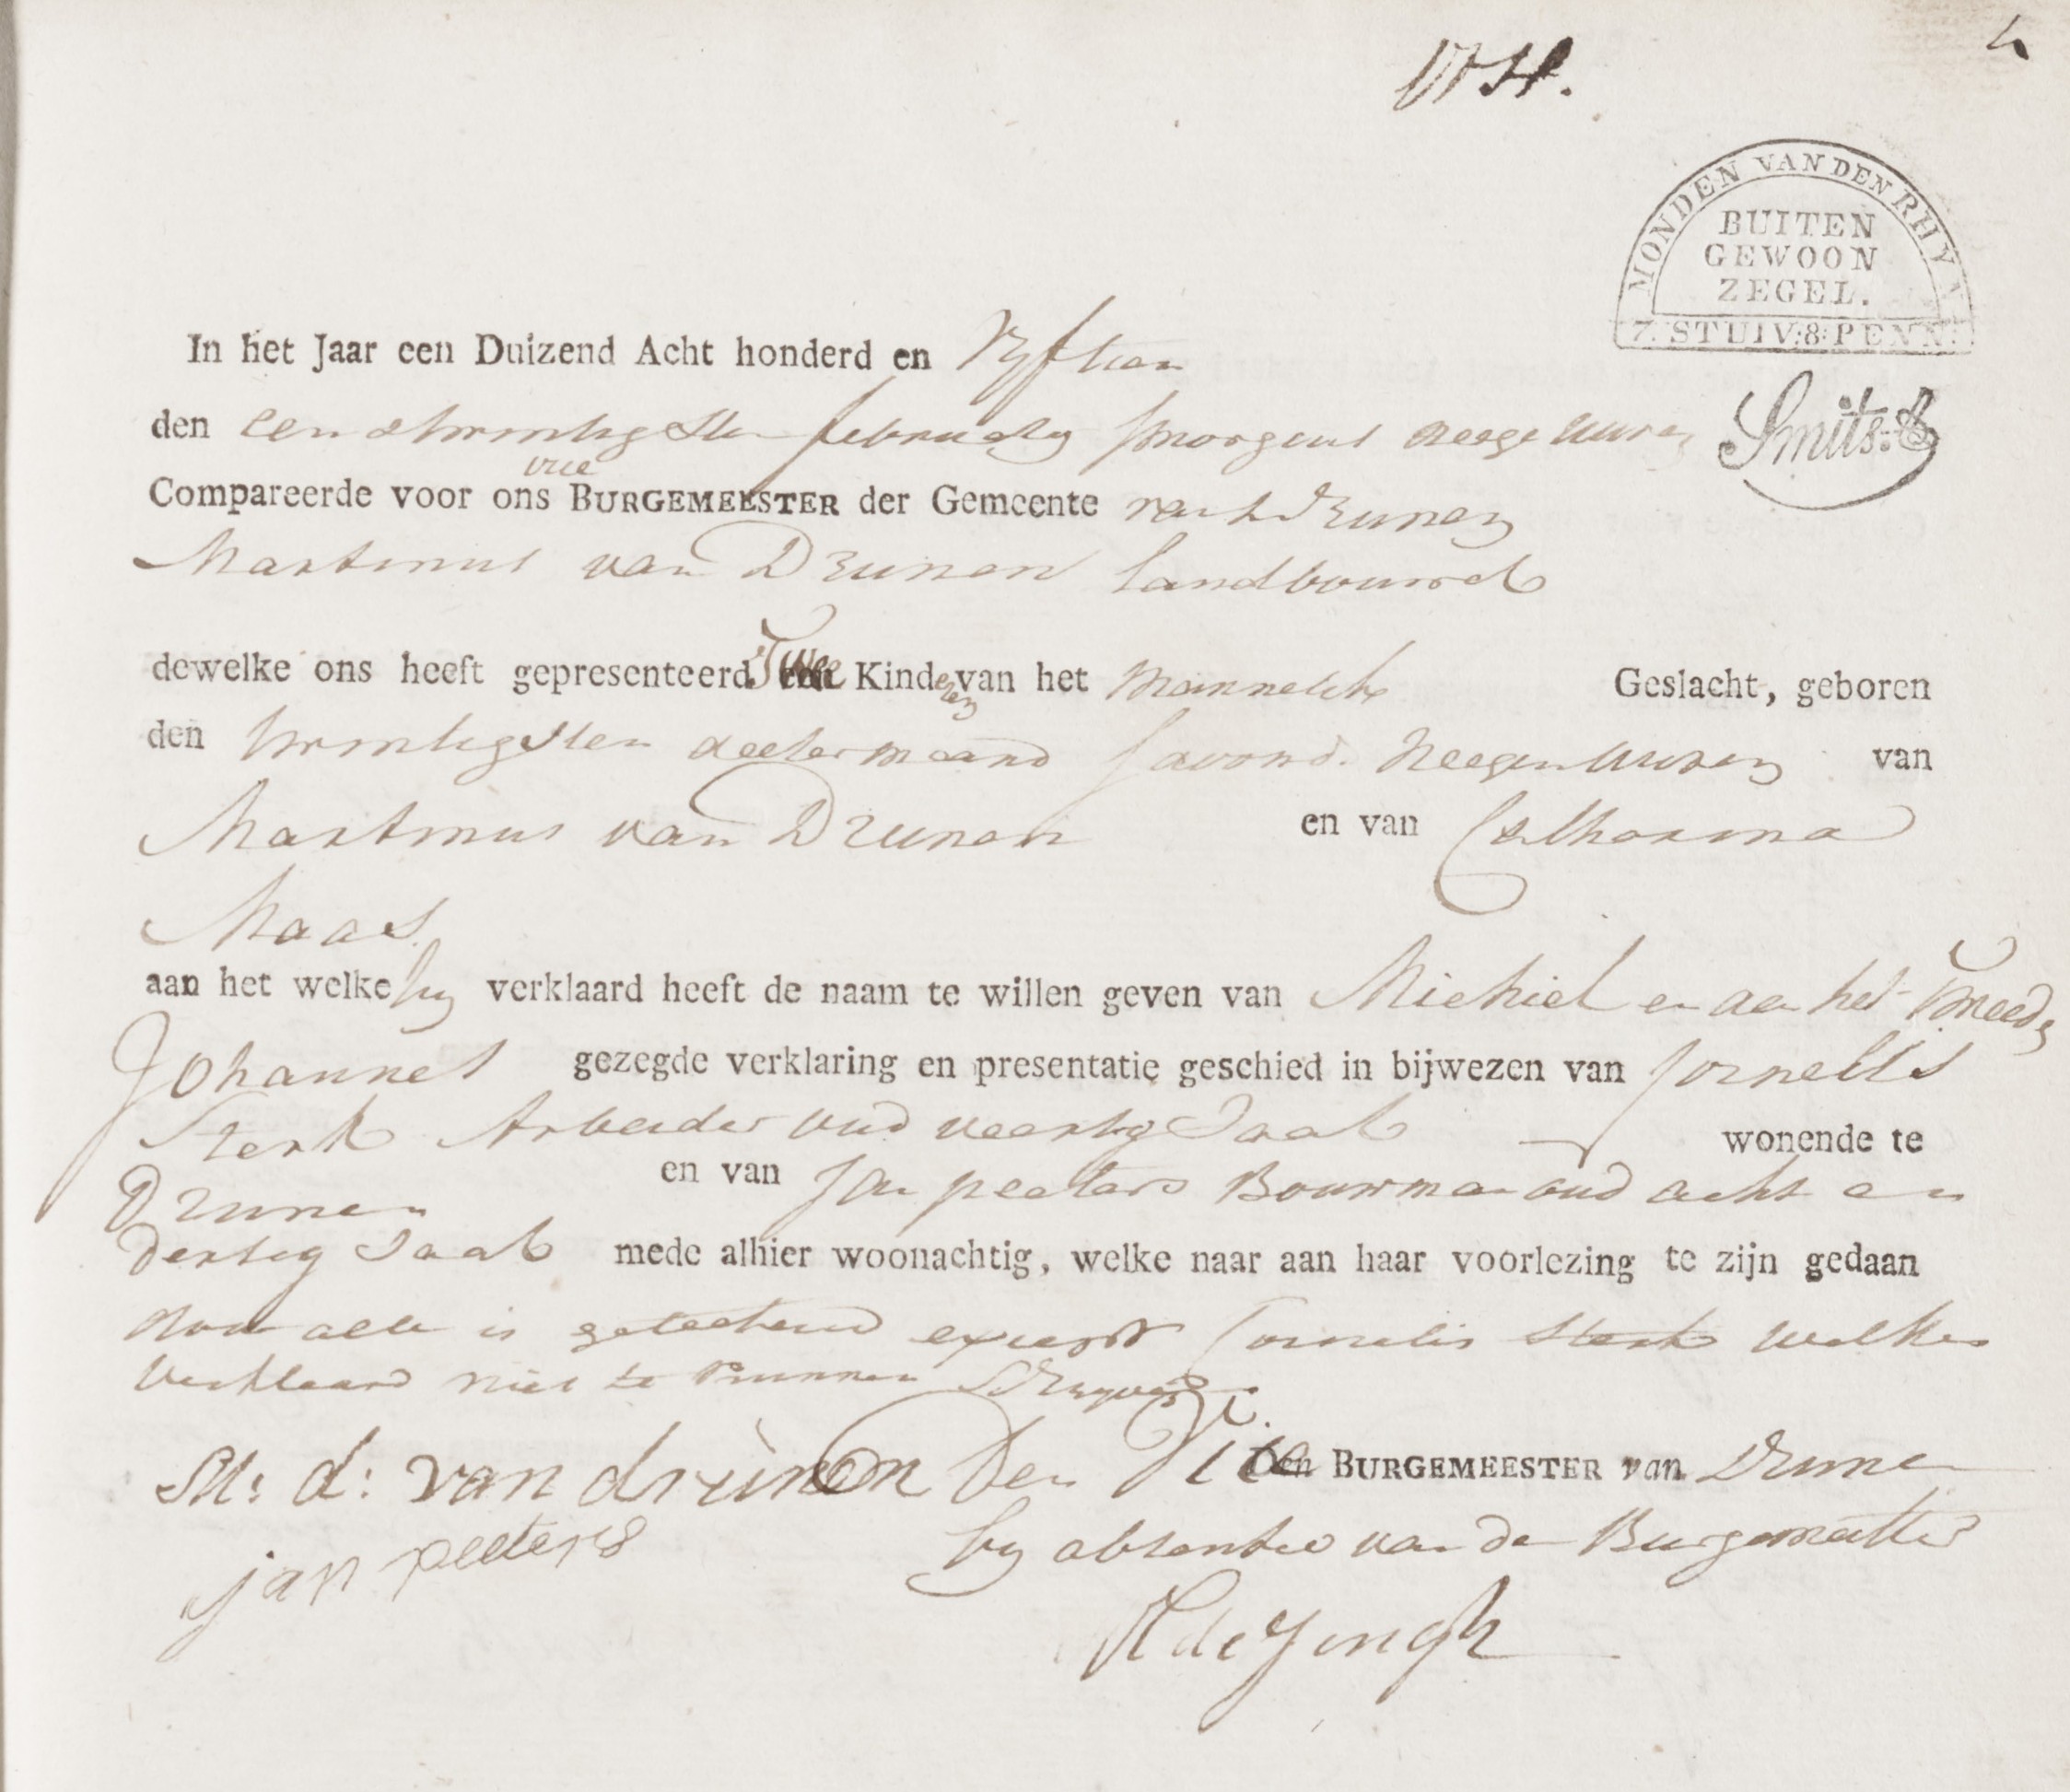 4
MONDEN VAN DEN RHYN
BUITEN
GEWOON
ZEGEL.
7. STUIV: 8: PENN:
Smits:
In het Jaar een Duizend Acht honderd en Vyftien
den een & twintigsten february smorgens neege uuren
vice
Compareerde voor ons BURGEMEESTER der Gemeente van Drunen
Martinus van Drunen landbouwer
dewelke ons heeft gepresenteerd Twee Kinderen van het mannelik Geslacht, geboren
den twintigsten deeser maand savond neegen uuren van
Martinus van Drunen en van Catharina
Maas
aan het welke hy verklaard heeft de naam te willen geven van Michiel en aan het Tweede
Johannes gezegde verklaring en presentatie geschied in bijwezen van Cornelis
Sterk Arbeider oud veertig Jaar wonende te
Drunen en van Jan peeters Bouwman oud acht en
dertig Jaar mede alhier woonachtig, welke naar aan haar voorlezing te zijn gedaan
door alle is geteekend except Cornelis Sterk welke
verklaard niet te kunnen Schryven
M: d: van drunen Den Vice BURGEMEESTER van Drunen
jan peeters by absentie van den Burgemeester
A de Jongh